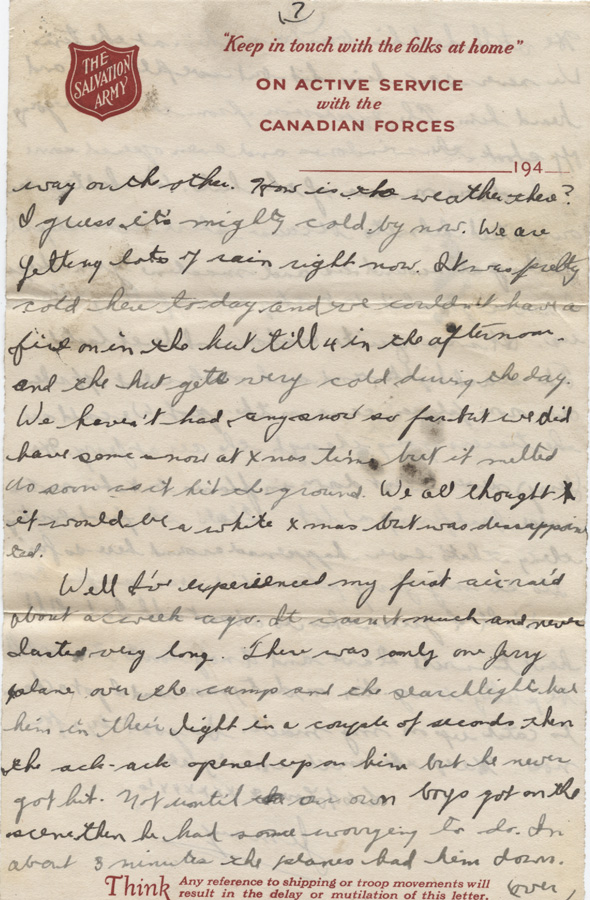 7
THE
SALVATION
ARMY
"Keep in touch with the folks at home"
ON ACTIVE SERVICE
with the
CANADIAN FORCES
194
way or the other. How is the weather there?
I guess it's mighty cold by now. We are
getting lots of rain right now. It was pretty
cold here today and we couldn't have a
fire on in the hut till 4 in the afternoon.
and the hut gets very cold during the day.
We haven't had any snow so far but we did
have some snow at Xmas time but it melted
as soon as it hit the ground. We all thought
it would be a white Xmas but was dissappoin
ted.
Well I've experienced my first air-raid
about a week ago. It wasn't much and never
lasted very long. There was only one Jerry
plane over the camp and the searchlights had
him in their light in a couple of seconds then
the ack-ack opened up on him but he never
got hit. Not until our own boys got on the
scene then he had some worrying to do. In
about 3 minutes the planes had him down.
(over)
Think Any reference to shipping or troop movements will
result in the delay or mutilation of this letter.